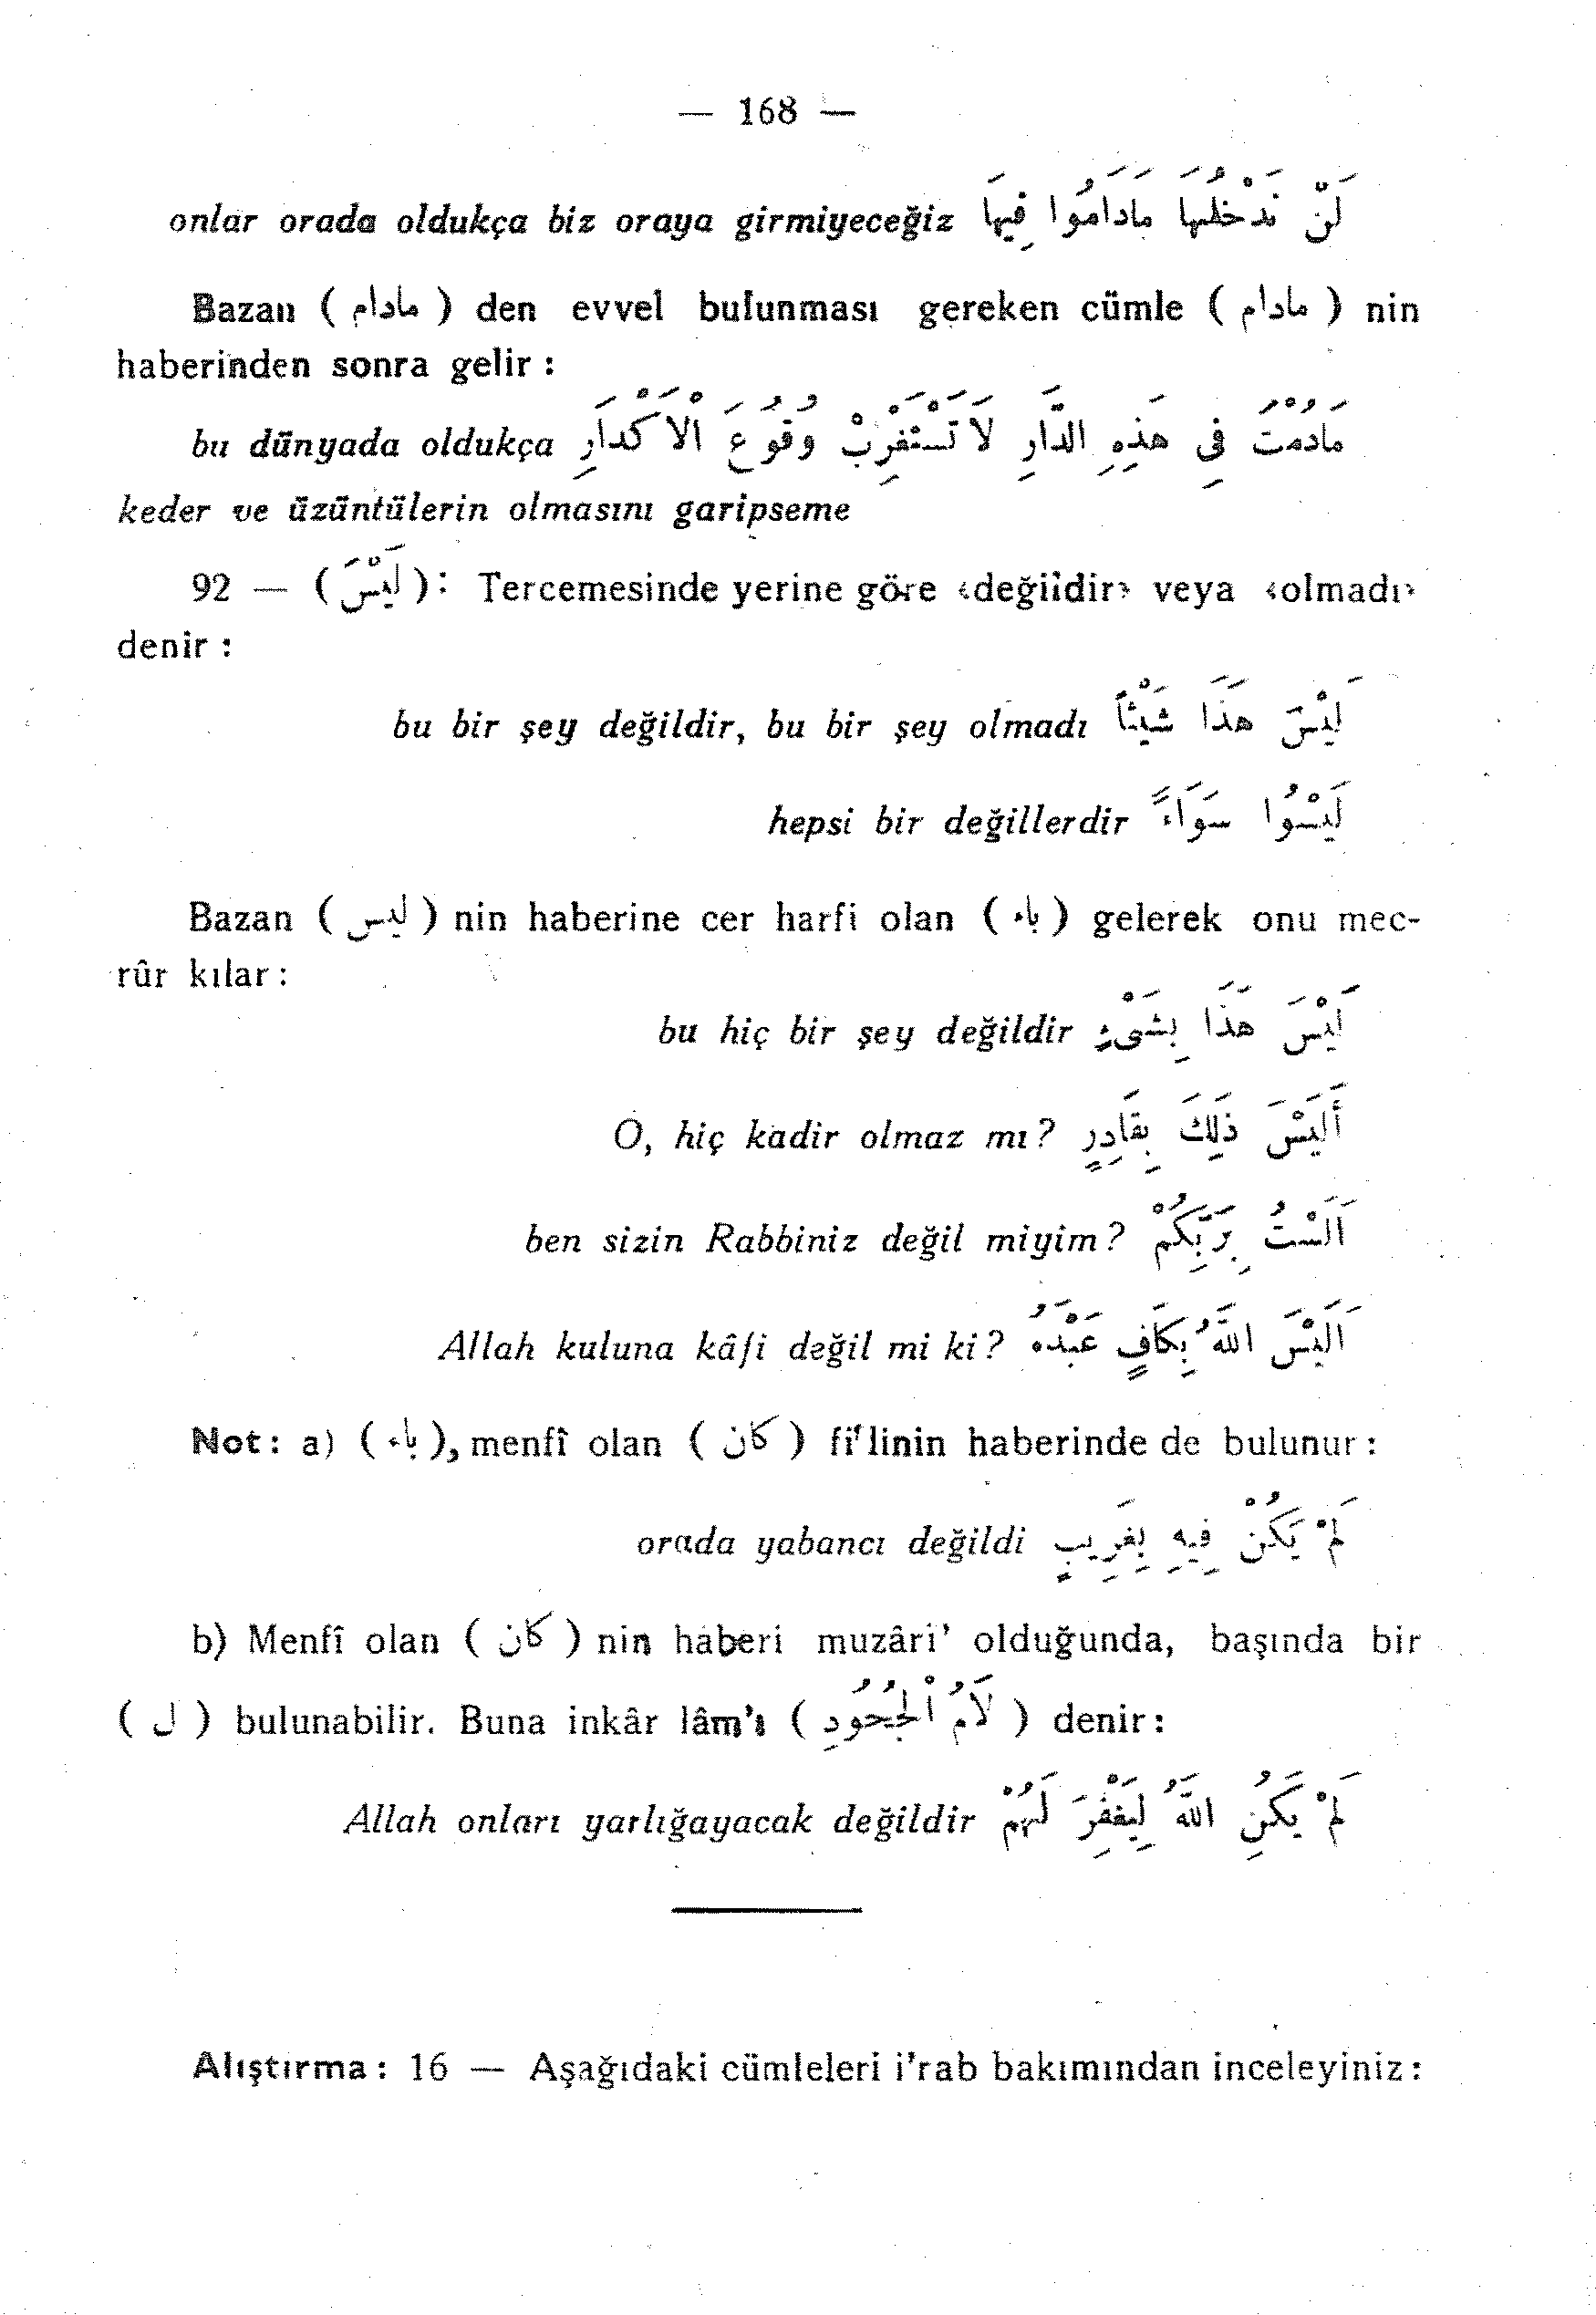 — 168 —
onlar orada oldukça biz oraya girmiyeceğiz لَنْ نَدْخُلَهَا مَادَامُوا فِيهَا
Bazan ( مادام ) den evvel bulunması gereken cümle ( مادام ) nin
haberinden sonra gelir :
bu dünyada oldukça مَادُمْتَ فِي هَذِهِ الدَّارِ لَا تَسْتَغْرِبْ وُقُوعَ الْاَكْدَارِ
keder ve üzüntülerin olmasını garipseme
92 — ( لَيْسَ ) : Tercemesinde yerine göre «değildir» veya «olmadı»
denir :
bu bir şey değildir, bu bir şey olmadı لَيْسَ هَذَا شَيْئاً
hepsi bir değillerdir لَيْسُوا سَوَاءً
Bazan ( ليس ) nin haberine cer harfi olan ( باء ) gelerek onu mec-
rûr kılar :
bu hiç bir şey değildir لَيْسَ هَذَا بِشَىْءٍ
O, hiç kadir olmaz mı? أَلَيْسَ ذَلِكَ بِقَادِرٍ
ben sizin Rabbiniz değil miyim? اَلَسْتُ بِرَبِّكُمْ
Allah kuluna kâfi değil mi ki? اَلَيْسَ اللهُ بِكَافٍ عَبْدَهُ
Not : a) ( باء ), menfî olan ( كان ) fi'linin haberinde de bulunur :
orada yabancı değildi لَمْ يَكُنْ فِيهِ بِغَرِيبٍ
b) Menfî olan ( كان ) nin haberi muzâri' olduğunda, başında bir
( ل ) bulunabilir. Buna inkâr lâm'ı ( لَامُ الْجُحُودِ ) denir :
Allah onları yarlığayacak değildir لَمْ يَكُنِ اللهُ لِيَغْفِرَ لَهُمْ
Alıştırma : 16 — Aşağıdaki cümleleri i'rab bakımından inceleyiniz :